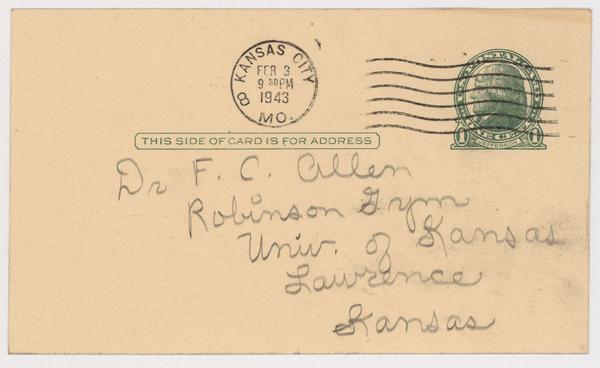 KANSAS CITY
FEB 3
9 30 PM
1943
8
MO.
THIS SIDE OF CARD IS FOR ADDRESS
1 JEFFERSON 1
Dr F. C. Allen
Robinson Gym
Univ. of Kansas
Lawrence
Kansas